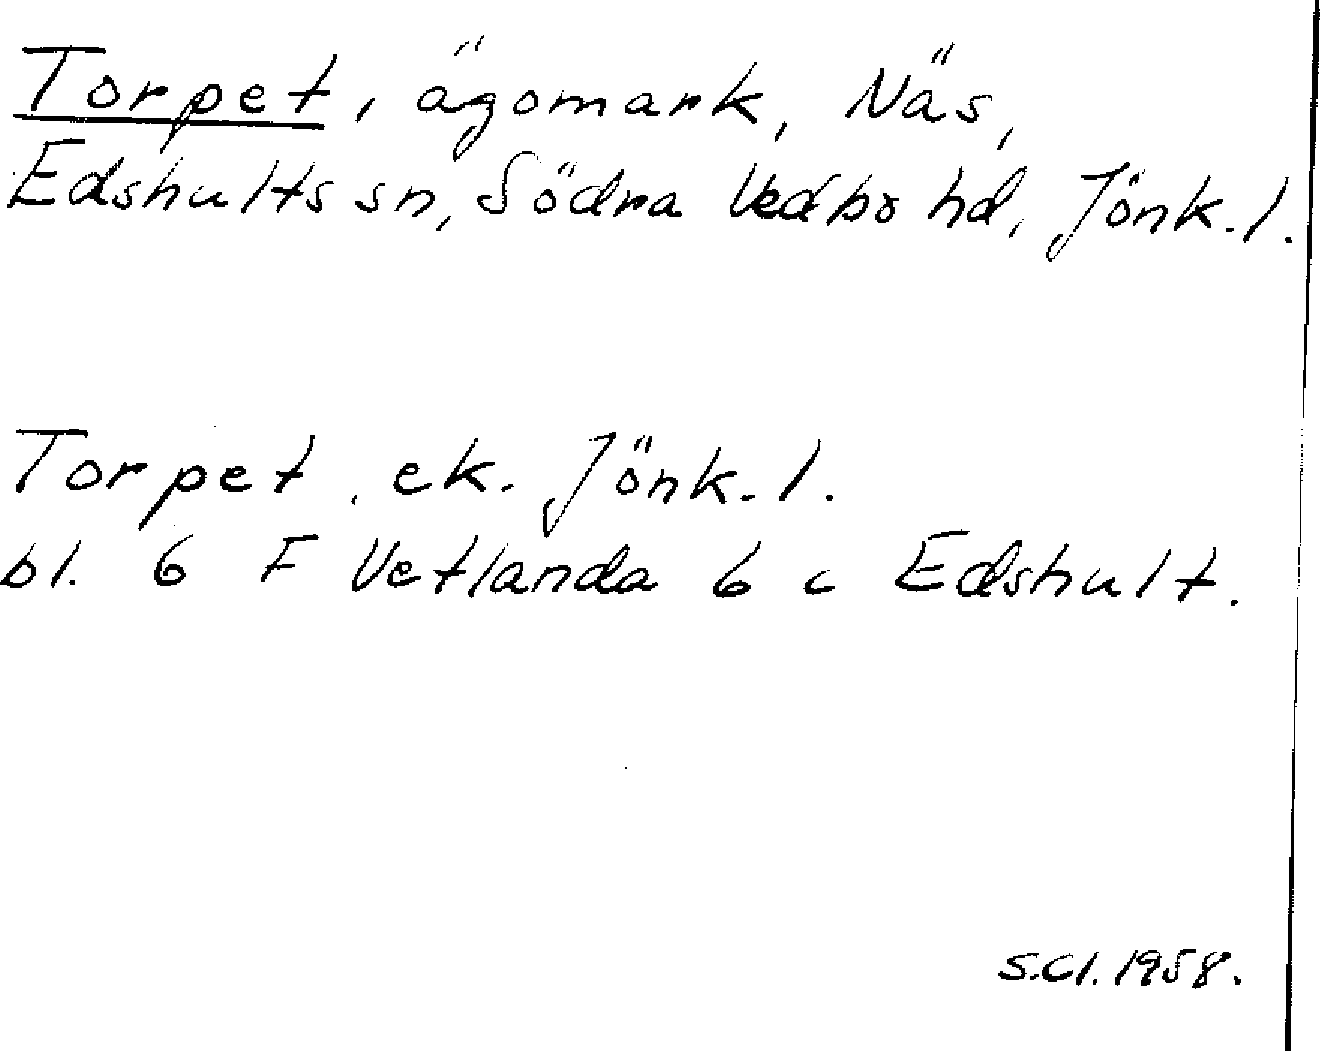 Torpet, ägomark, Näs,
Edshults sn, Södra Vedbo hd, Jönk. l.
Torpet, ek. Jönk. l.
bl. 6 F Vetlanda 6 c Edshult.
S.Cl. 1958.